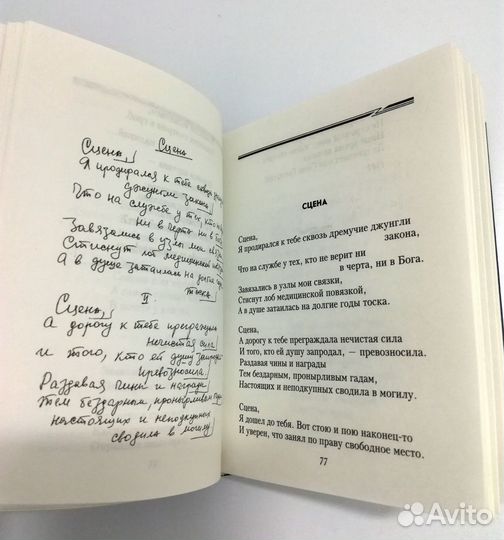 Сцена
Сцена,
Я продирался к тебе сквозь
джунгли закона,
Что на службе у тех, кто не
ни в черта, ни в Б
Завязались в узлы мои связки
Стиснут лоб медицинской
А в душе затаилась на долгие годы
тоска.
II.
Сцена,
А дорогу к тебе преграждала
нечистая сила
и того, кто ей душу запродал
превозносила.
Раздавая чины и награды
Тем бездарным, пронырливым
настоящих и неподкупных
сводила в могилу
77
СЦЕНА
Сцена,
Я продирался к тебе сквозь дремучие джунгли
закона,
Что на службе у тех, кто не верит ни
в черта, ни в Бога.
Завязались в узлы мои связки,
Стиснут лоб медицинской повязкой,
А в душе затаилась на долгие годы тоска.
Сцена,
А дорогу к тебе преграждала нечистая сила
И того, кто ей душу запродал, — превозносила.
Раздавая чины и награды
Тем бездарным, пронырливым гадам,
Настоящих и неподкупных сводила в могилу.
Сцена,
Я дошел до тебя. Вот стою и пою наконец-то
И уверен, что занял по праву свободное место.
77
Avito